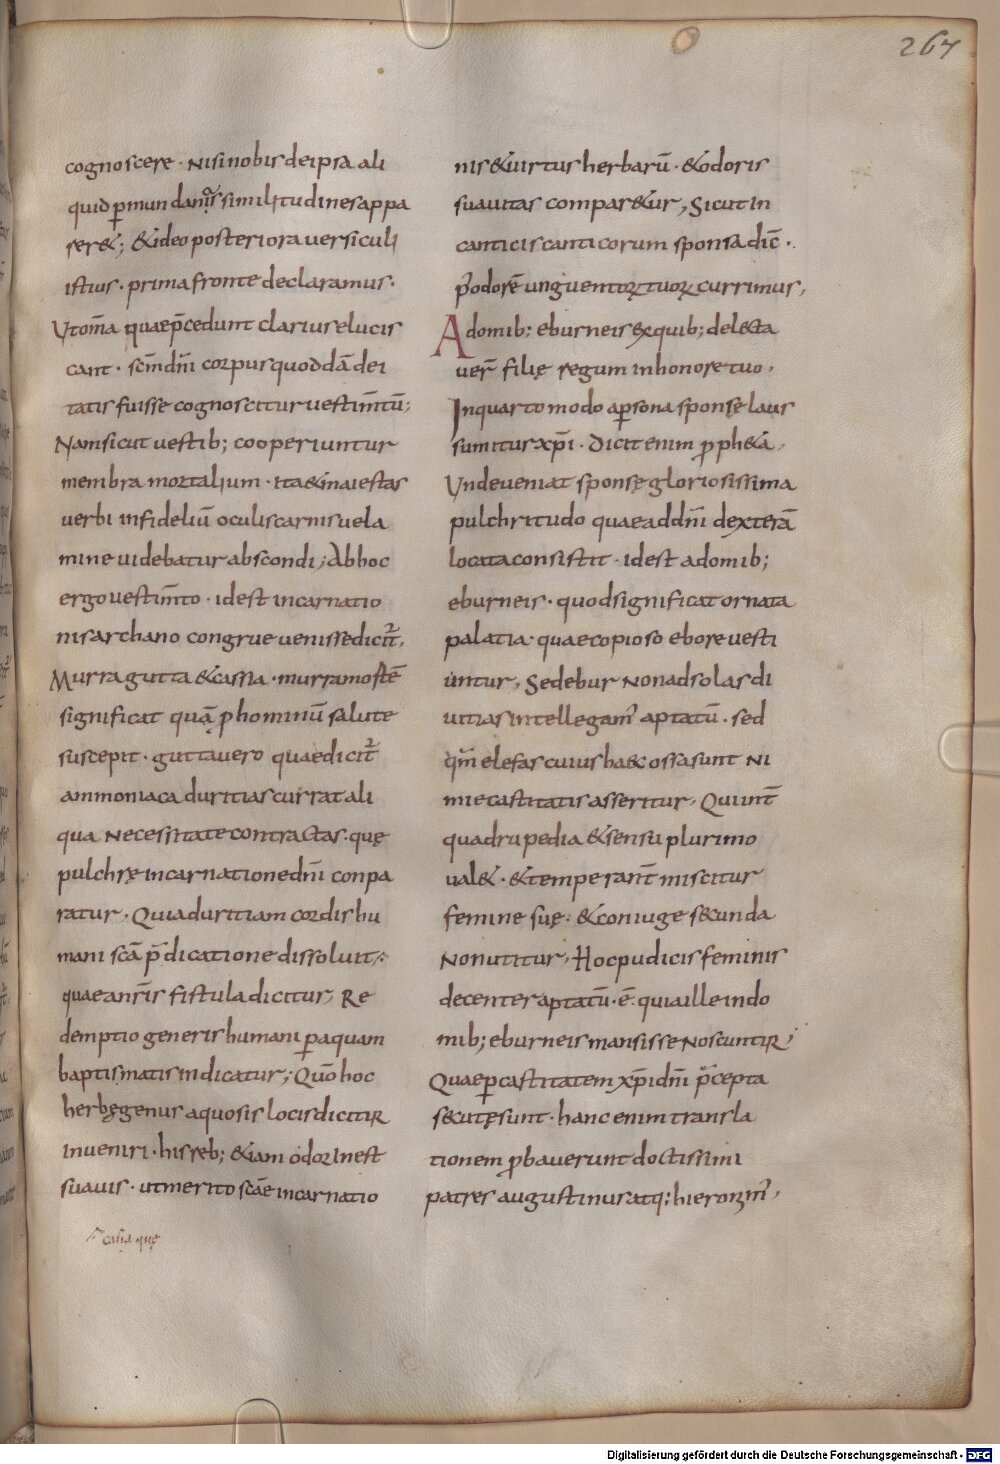 267
cognoscere · nisi nobis de ipsa ali
quid p̱ mundanas similitudines appa
rer&; &ideo posteriora versiculi
istius · prima fronte declaramus ·
Vt om̄a quae p̄cedunt clarius elucis
cant · sc̄m dn̄i corpus quoddā dei
tatis fuisse cognoscitur vestim̄tū;
Nam sicut vestib; cooperiuntur
membra mortalium · ita & maiestas
verbi infideliū oculis carnis vela
mine videbatur abscondi; Ab hoc
ergo vestim̄to · id est incarnatio
nis archano congrue venisse dicit̄,
Murra gutta & cassia · murra mortē
significat quā p̱ hominū salute
suscepit · gutta vero quae dicit̄
ammoniaca duritias currat ali
qua necessitate contractas · quę
pulchrę incarnatione dn̄i conpa
ratur, Quia duritiam cordis hu
mani sc̄a p̄dicatione dissoluit;
quae anr̄is fistula dicitur, Re
demptio generis humani p̱ aquam
baptismatis indicatur; Qūo hoc
herbę genus aquosis locis dicitur
inveniri · his reb; &iam odor inest
suavis · ut merito sc̄ae incarnatio
casia quę
nis & virtus herbarū · & odoris
suavitas compar&ur, Sicut in
canticis canticorum sponsa dic̄ ·
P̱ odorē unguentorꝝ tuorꝝ currimus,
A domib; eburneis ex quib; delecta
ver̄ filię regum in honore tuo,
In quarto modo a p̱sona sponsę laus
sumitur xp̄i · dicit enim p̱ph&a,
Unde veniat sponsę gloriosissima
pulchritudo quae ad dn̄i dexterā
locata consistit · id est a domib;
eburneis · quod significat ornata
palatia quae copioso ebore vesti
untur, Sed ebur non ad solas di
vitias intellegam̄ aptatū · sed
qm̄ elefas cuius haec ossa sunt ni
mie castitatis asseritur, Qui int̄
quadrupedia & sensu plurimo
val& · & temperant̄ miscitur
femine suę · & coniuge secunda
non utitur, Hoc pudicis feminis
decenter aptatū · ē · quia ille in do
mib; eburneis mansisse noscuntur,
Quae p̱ castitatem xp̄i dn̄i p̄cepta
secutę sunt · hanc enim transla
tionem p̱baverunt doctissimi
patres augustinus atq; hieronim̄,